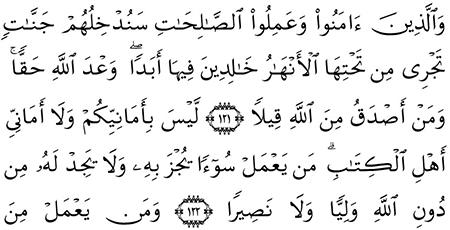 وَٱلَّذِينَ ءَامَنُواْ وَعَمِلُواْ ٱلصَّٰلِحَٰتِ سَنُدۡخِلُهُمۡ جَنَّٰتٖ
تَجۡرِي مِن تَحۡتِهَا ٱلۡأَنۡهَٰرُ خَٰلِدِينَ فِيهَآ أَبَدٗاۖ وَعۡدَ ٱللَّهِ حَقّٗاۚ
وَمَنۡ أَصۡدَقُ مِنَ ٱللَّهِ قِيلٗا ﴿١٢١﴾ لَّيۡسَ بِأَمَانِيِّكُمۡ وَلَآ أَمَانِيِّ
أَهۡلِ ٱلۡكِتَٰبِۗ مَن يَعۡمَلۡ سُوٓءٗا يُجۡزَ بِهِۦ وَلَا يَجِدۡ لَهُۥ مِن
دُونِ ٱللَّهِ وَلِيّٗا وَلَا نَصِيرٗا ﴿١٢٢﴾ وَمَن يَعۡمَلۡ مِنَ